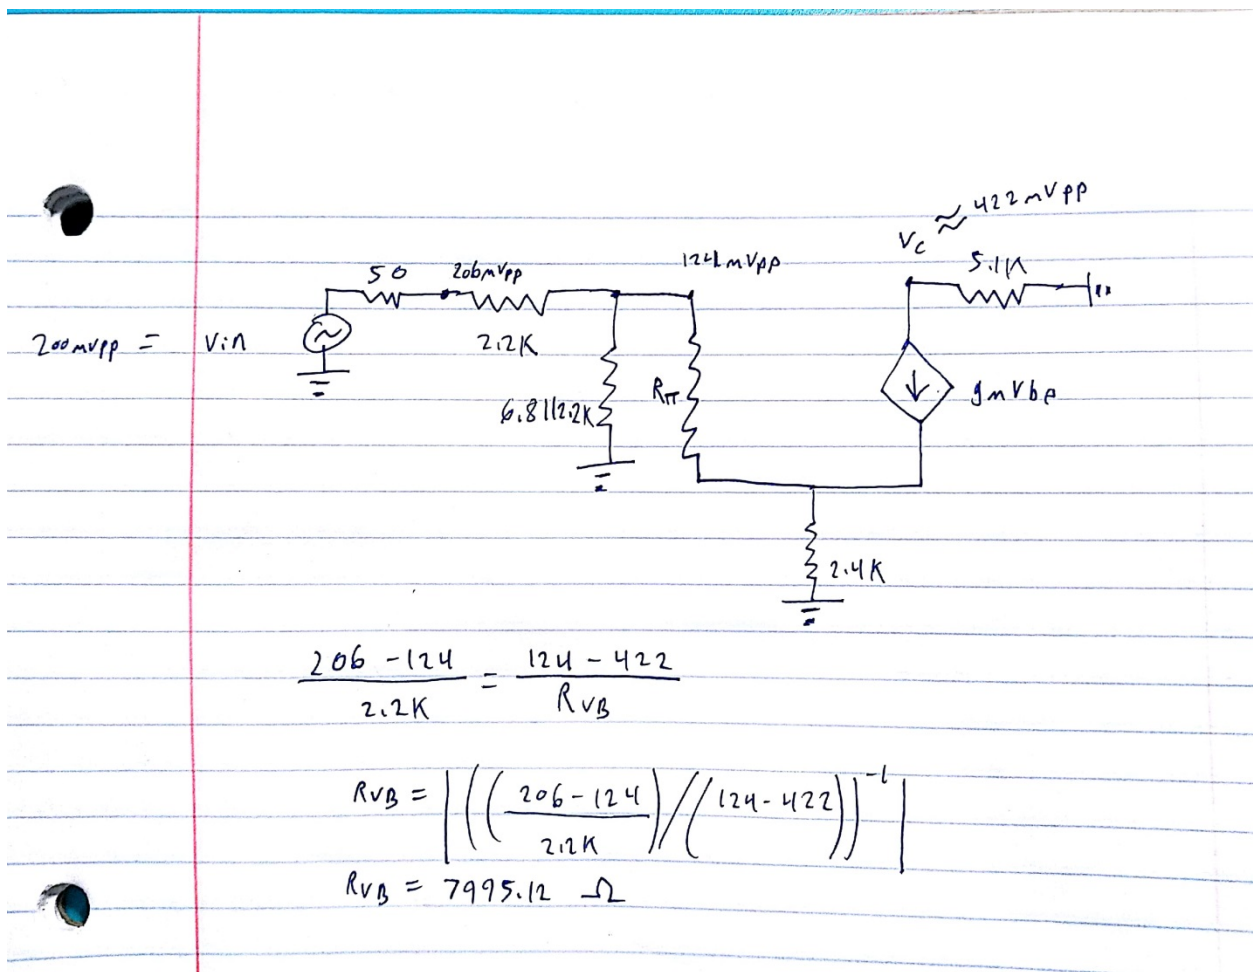 V_C ≈ 422mVpp
50 206mVpp 124mVpp 5.1K
200mVpp = Vin 2.2K
6.8||2.2K Rπ gmVbe
2.4K
206 - 124 / 2.2K = 124 - 422 / R_VB
R_VB = |(((206-124 / 2.2K)/(124-422))^-1|
R_VB = 7995.12 Ω